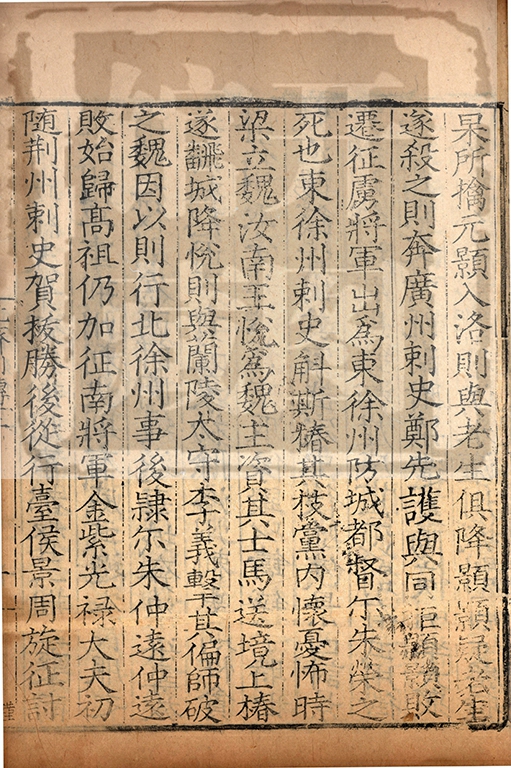 杲所擒元顥入洛則與老生俱降顥顥疑老生
遂殺之則奔廣州刺史鄭先護與同拒顥顥敗
遷征虜將軍出為東徐州防城都督尒朱榮之
死也東徐州刺史斛斯椿其枝黨內懷憂怖時
梁立魏汝南王悅為魏主資其士馬送境上椿
遂翻城降悅則與蘭陵太守李義擊其偏師破
之魏因以則行北徐州事後隷尒朱仲遠仲遠
敗始歸髙祖仍加征南將軍金紫光禄大夫初
随荆州刺史賀拔勝後從行臺侯景周旋征討